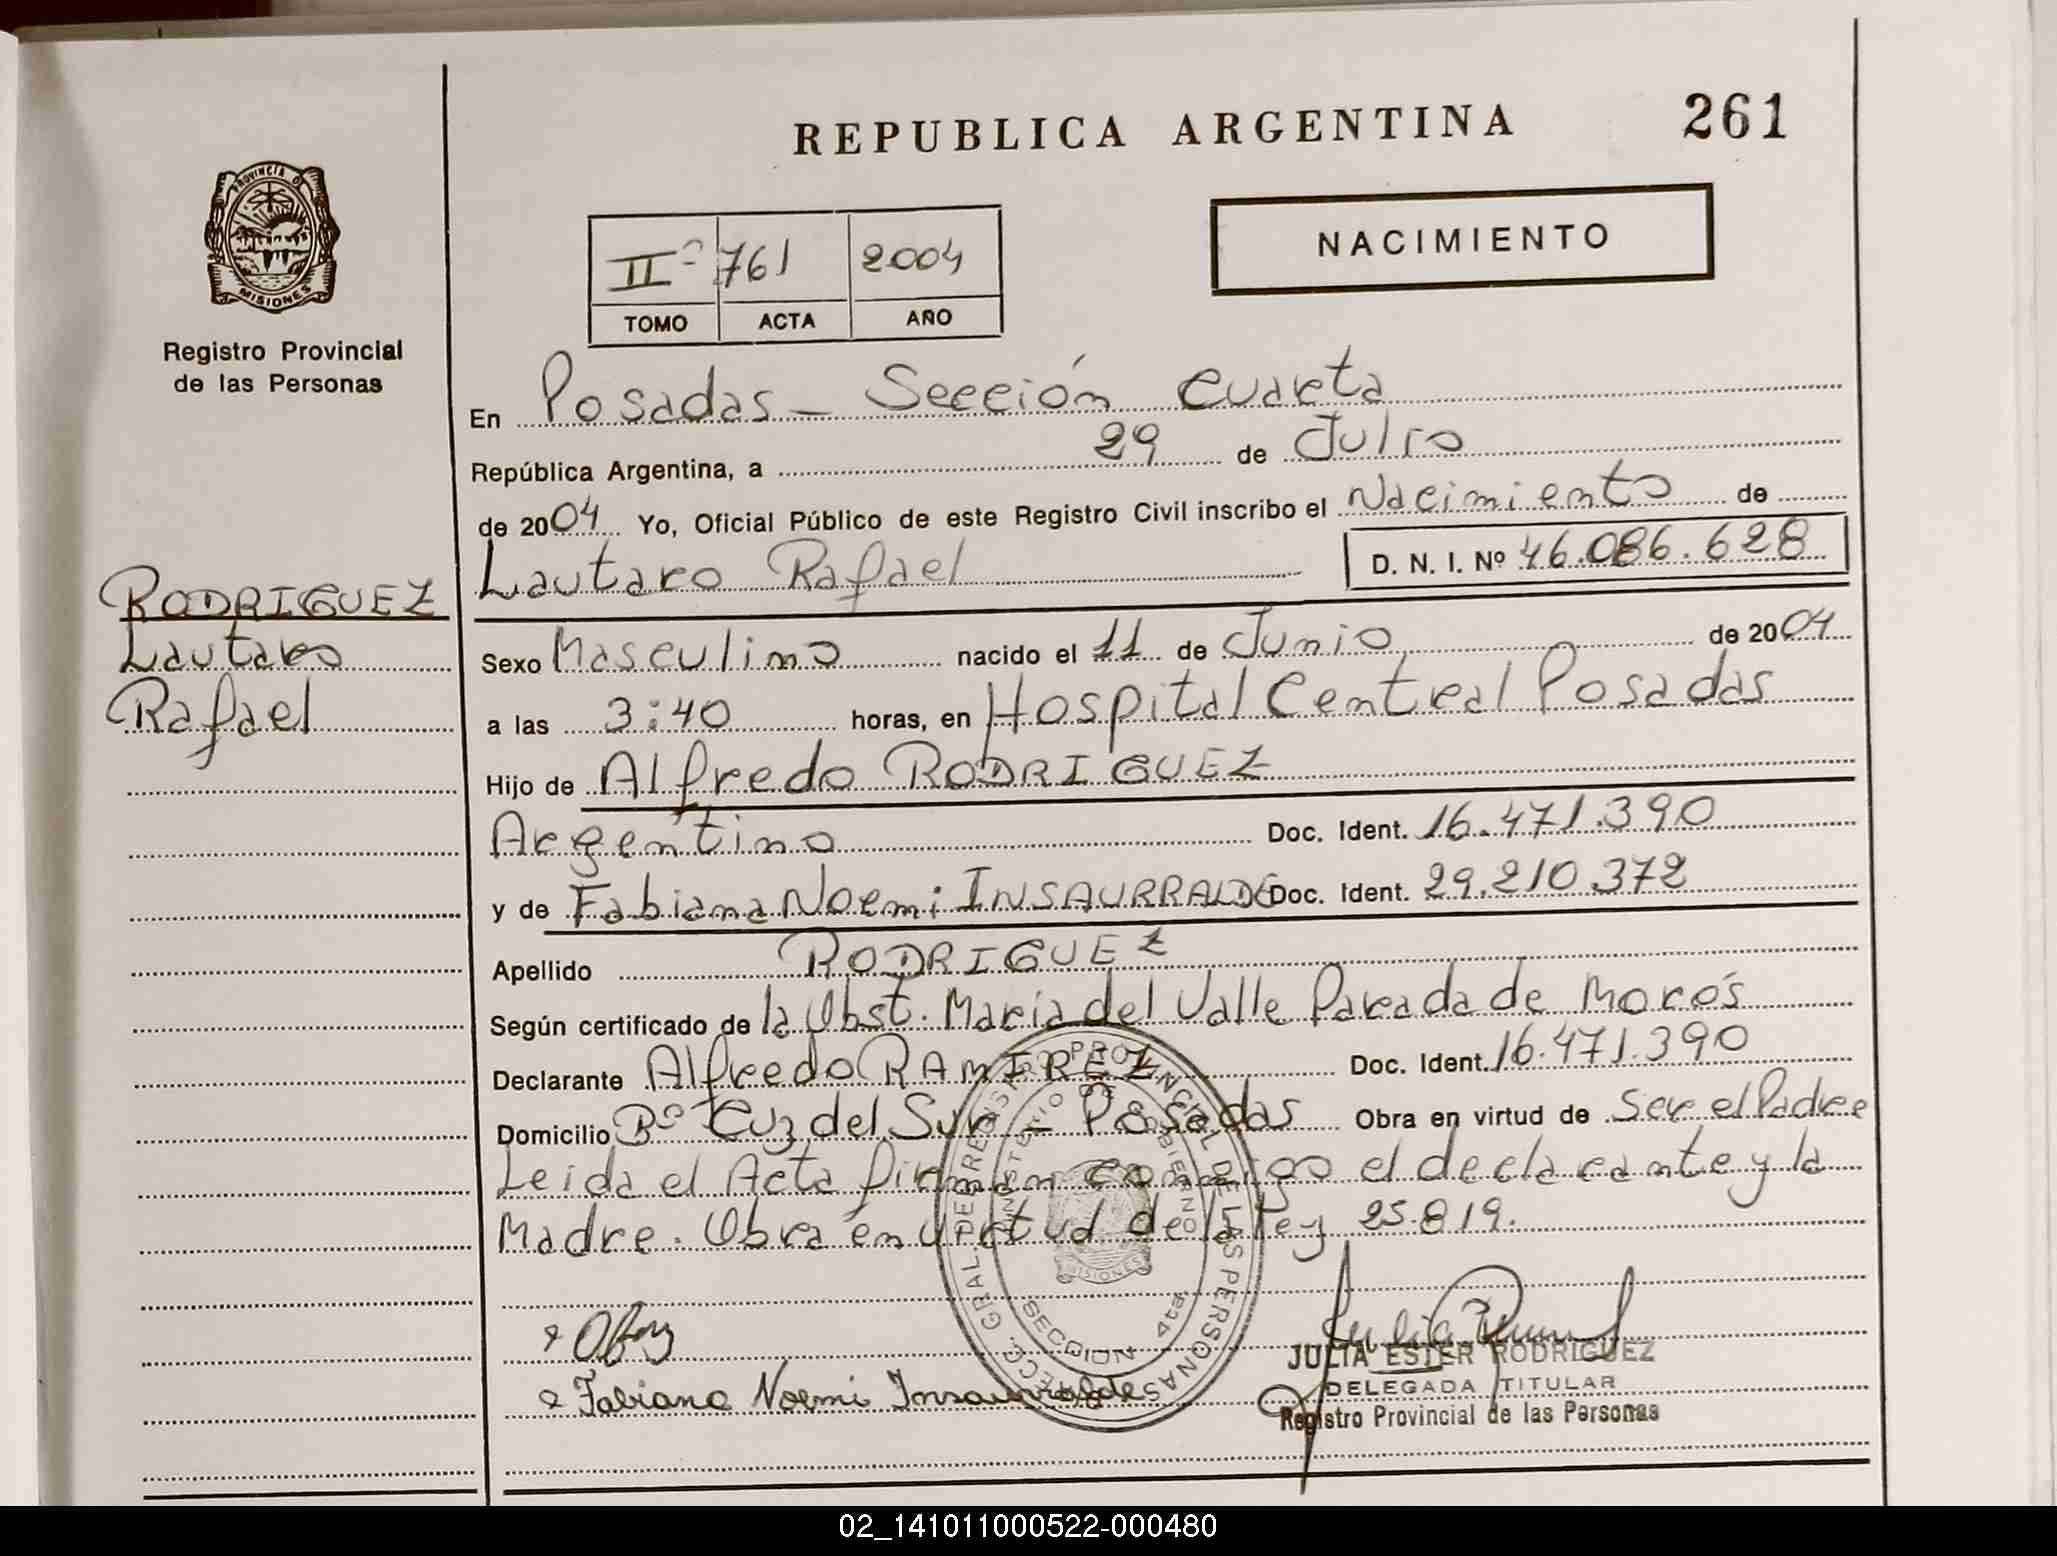 REPUBLICA ARGENTINA
261
PROVINCIA DE
MISIONES
Registro Provincial
de las Personas
IIº 761 2004
TOMO ACTA AÑO
NACIMIENTO
En Posadas - Sección Cuarta
República Argentina, a 29 de Julio
de 2004 Yo, Oficial Público de este Registro Civil inscribo el Nacimiento de
Lautaro Rafael D. N. I. Nº 46.086.628
RODRIGUEZ
Lautaro
Rafael
Sexo Masculino nacido el 11 de Junio de 2004
a las 3:40 horas, en Hospital Central Posadas
Hijo de Alfredo RODRIGUEZ
Argentino Doc. Ident. 16.471.390
y de Fabiana Noemi INSAURRALDE Doc. Ident. 29.210.372
Apellido RODRIGUEZ
Según certificado de la Obst. Maria del Valle Parada de Morós
Declarante Alfredo RAMIREZ Doc. Ident. 16.471.390
Domicilio Bº Cuz del Sur - Posadas Obra en virtud de Ser el Padre
Leida el Acta firman conmigo el declarante y la
Madre. Obra en virtud de la ley 25.819.
DIRECC. GRAL. DEL REGISTRO PROVINCIAL DE LAS PERSONAS
MINISTERIO DE GOBIERNO
MISIONES
SECCION 4ta.
Fabiana Noemi Insaurralde
JULIA ESTER RODRIGUEZ
DELEGADA TITULAR
Registro Provincial de las Personas
02_141011000522-000480